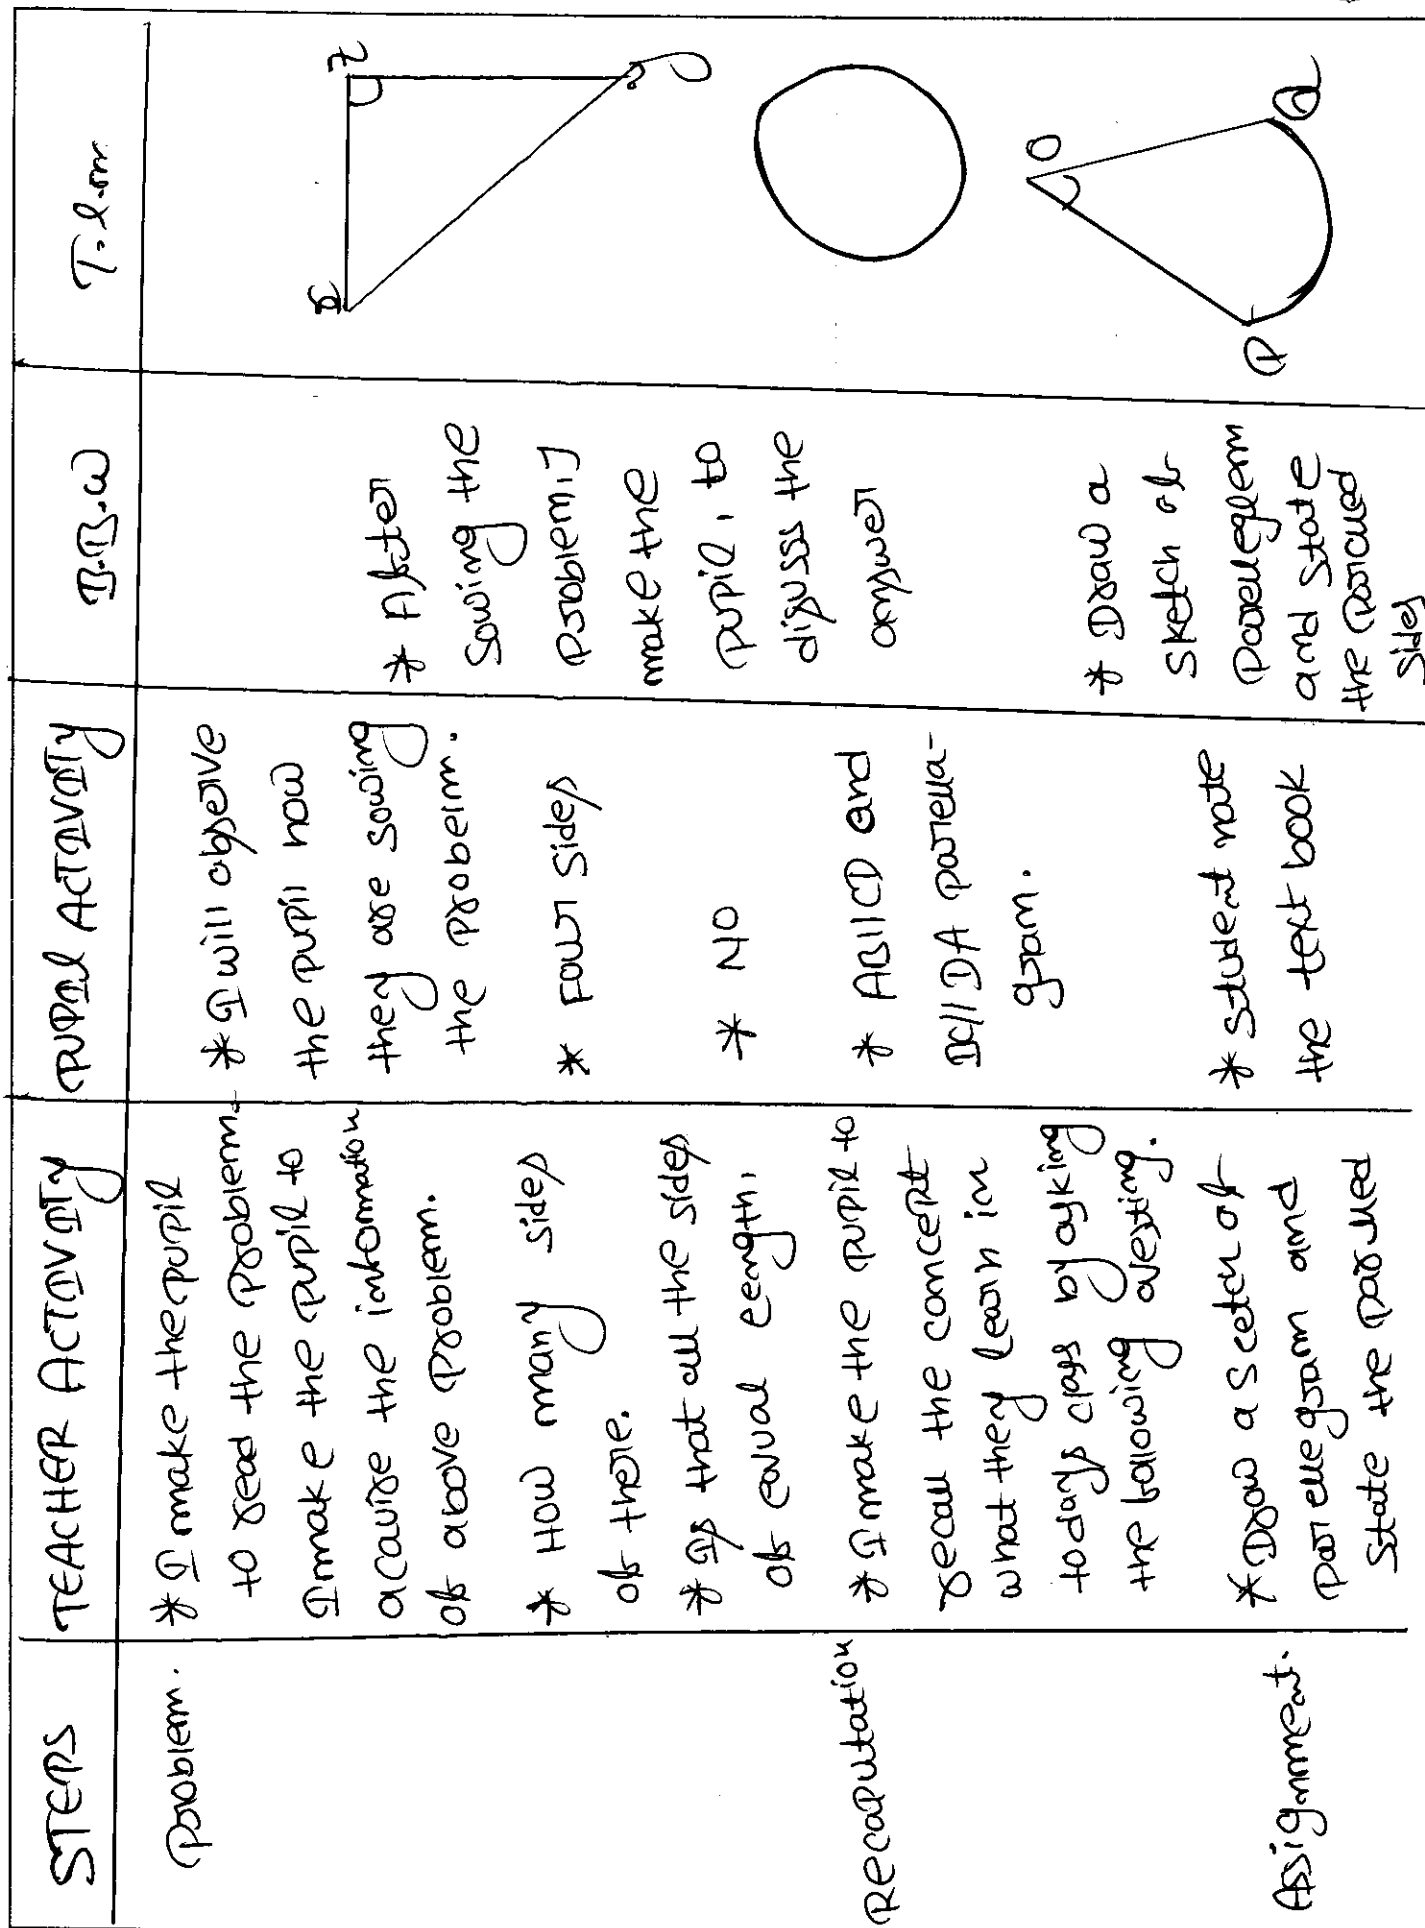 STEPS
TEACHER ACTIVITY
PUPIL ACTIVITY
B.B.W
T.l.m
Problem.
* I make the pupil
to read the problem.
I make the pupil to
acauire the infomation
of above problem.
* How many sides
of there.
* Is that all the sides
of eaual eength.
* I will observe
the pupil how
they are sowing
the probeim.
* Four sides
* NO
* After
Sowing the
Problem, I
make the
pupil, to
disuss the
answer
Z
y
O
P
Q
Recaputation
* I make the pupil to
recall the concept
what they learn in
todays class by asking
the following avesting.
* AB||CD and
BC||DA parella-
gram.
* Draw a
sketch of
Parelleglem
and state
the
sides
Assignment.
* Draw a scetch of
parellegram and
State the parlled
* Student note
the text book